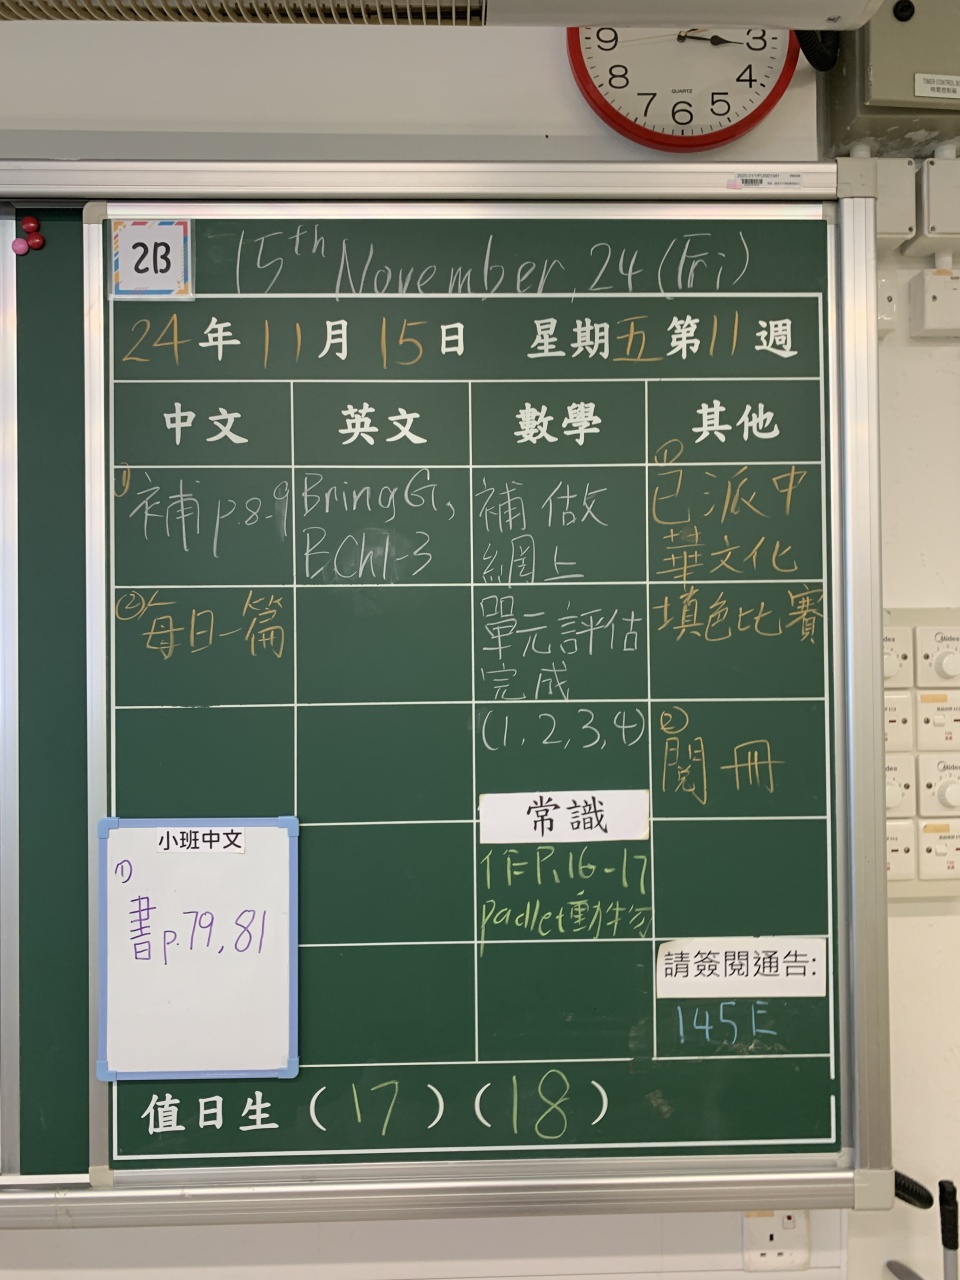 9
3
8
4
QUARTZ
7
6
5
2B
15th November, 24 (Fri)
24年 11月 15日 星期五 第11週
中文
英文
數學
其他
① 補 p.8-9
② 每日一篇
Bring G,
B Ch1-3
補做
網上
單元評估
完成
(1, 2, 3, 4)
① 已派中
華文化
填色比賽
② 閱冊
常識
作 P.16-17
padlet動物
小班中文
①
書 p.79, 81
請簽閱通告:
145E
值日生 (17) (18)
Midea
Midea